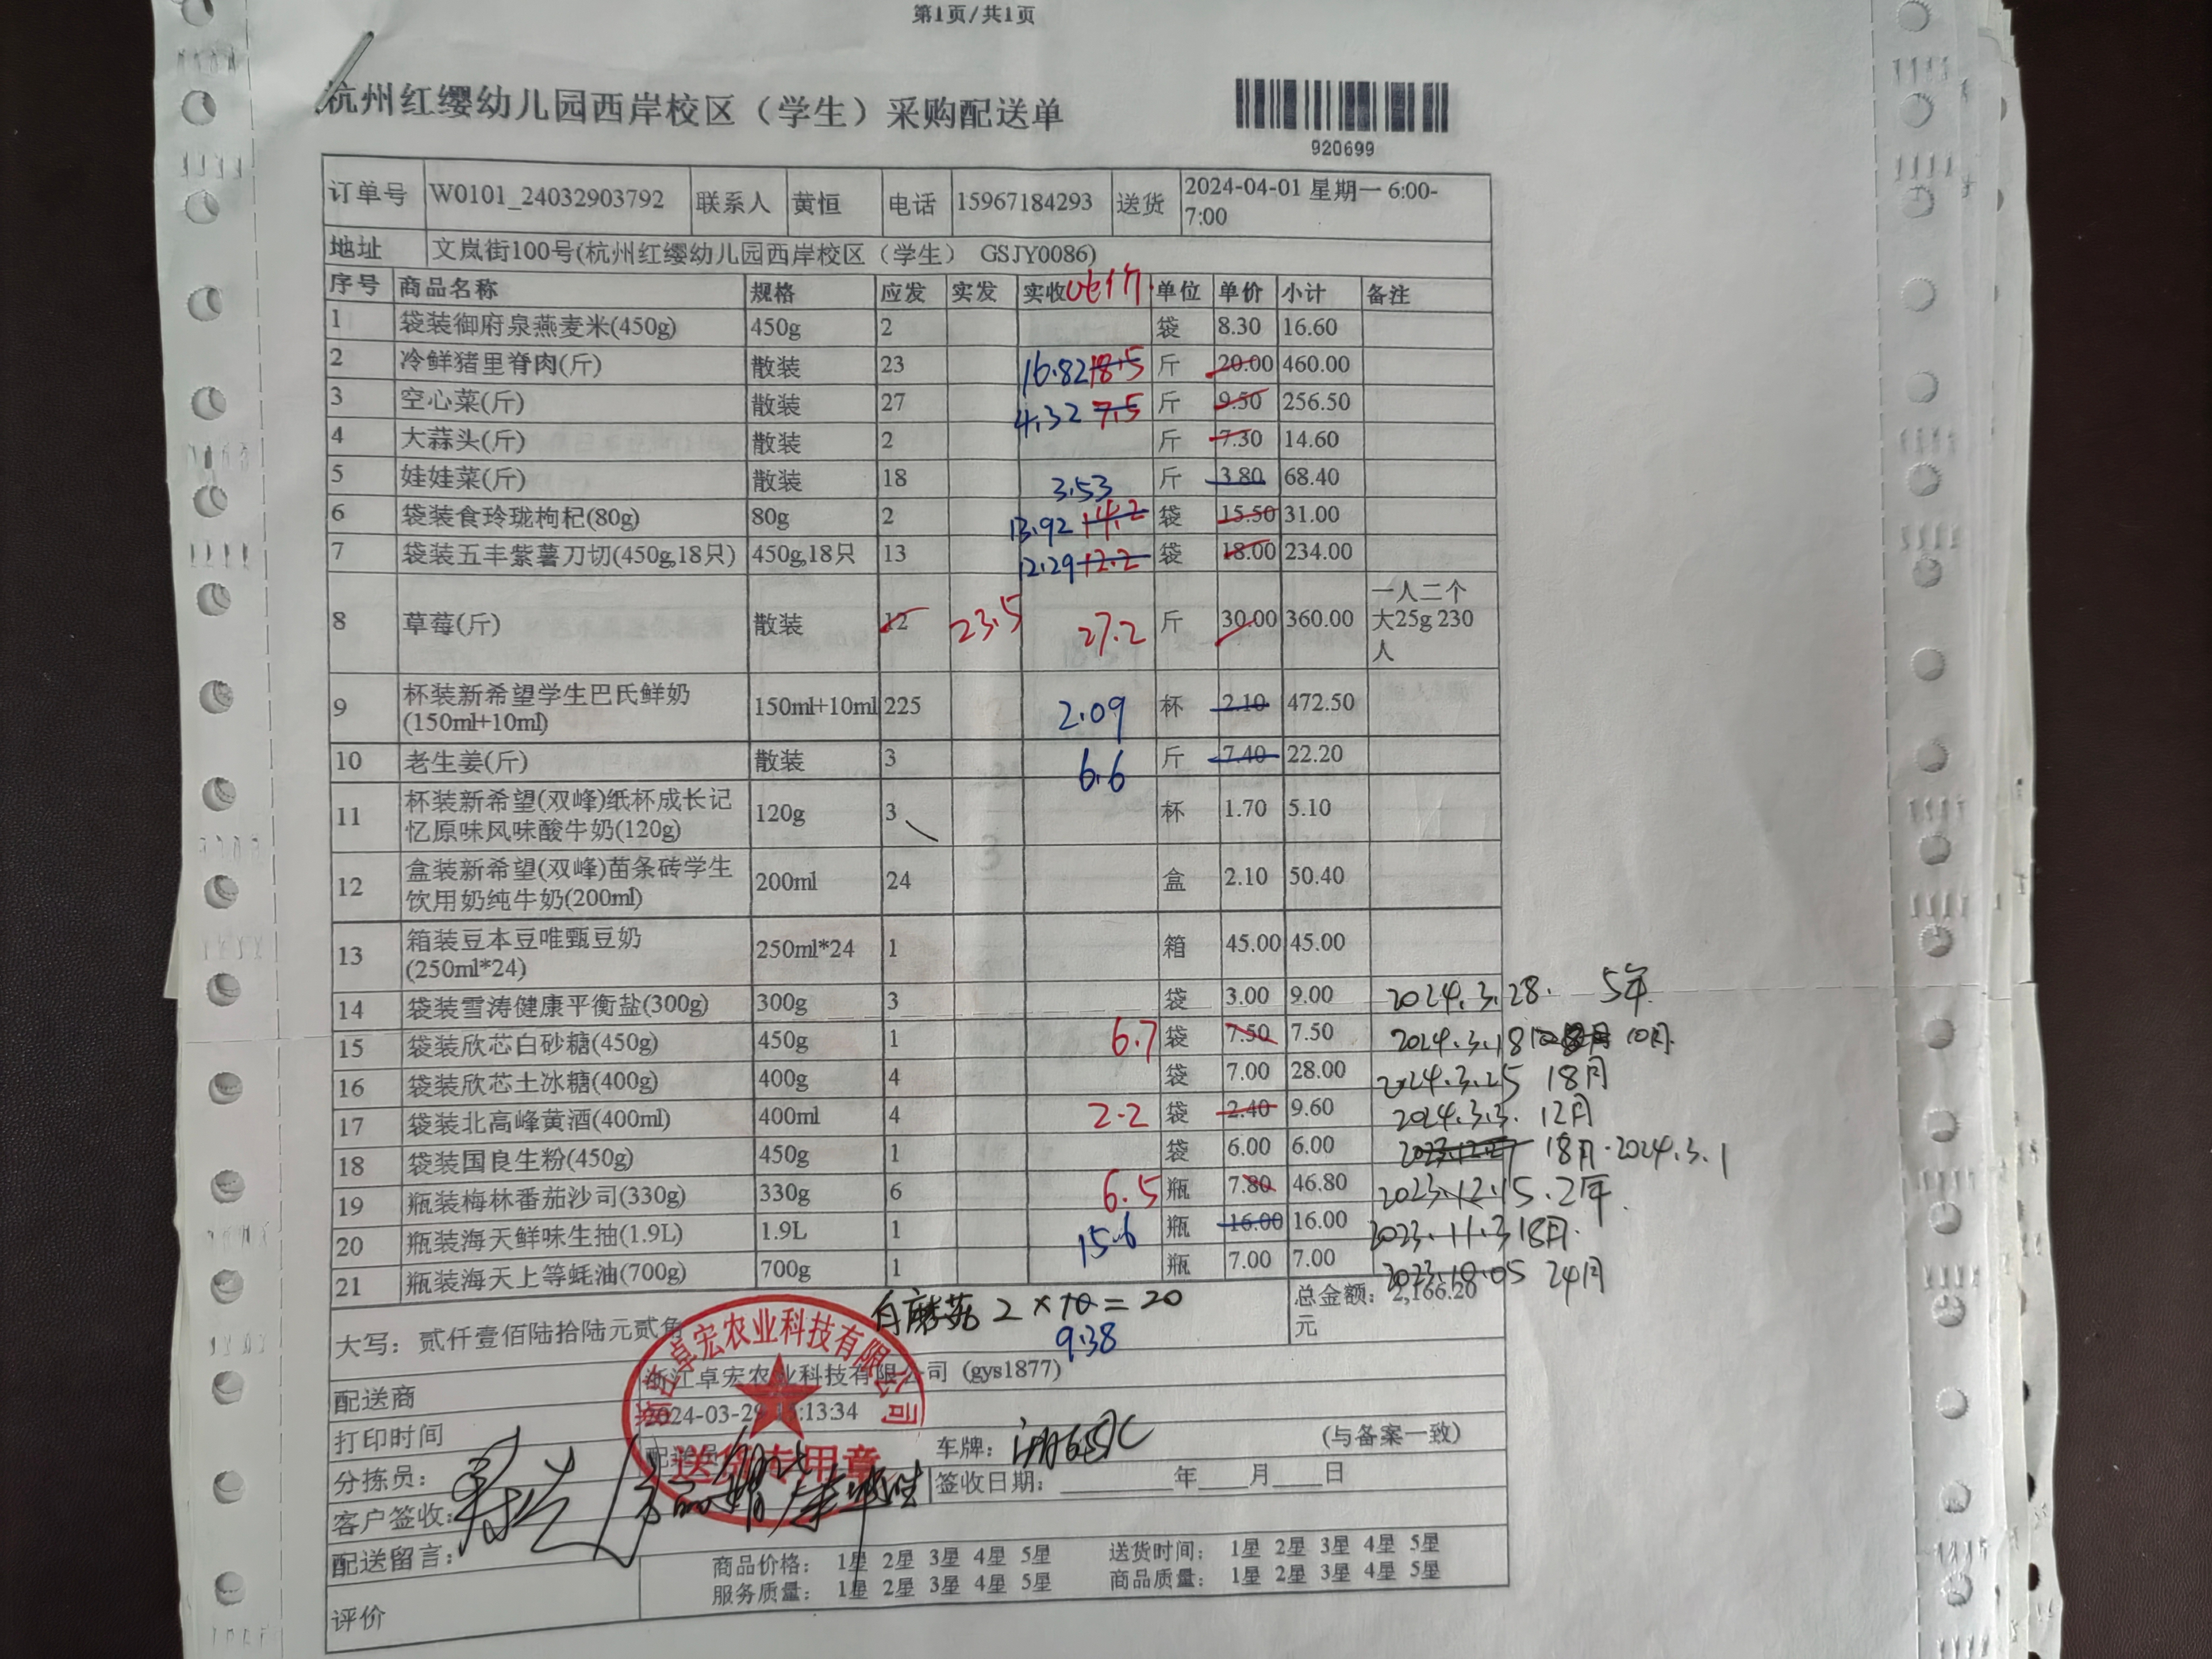 第1页/共1页
杭州红缨幼儿园西岸校区（学生）采购配送单
920699
订单号 W0101_24032903792 联系人 黄恒 电话 15967184293 送货 2024-04-01 星期一 6:00-
7:00
地址 文岚街100号(杭州红缨幼儿园西岸校区（学生） GSJY0086)
序号 商品名称 规格 应发 实发 实收 单位 单价 小计 备注
1 袋装御府泉燕麦米(450g) 450g 2 袋 8.30 16.60
2 冷鲜猪里脊肉(斤) 散装 23 16.82 18.5 斤 20.00 460.00
3 空心菜(斤) 散装 27 4.32 7.5 斤 9.50 256.50
4 大蒜头(斤) 散装 2 斤 7.30 14.60
5 娃娃菜(斤) 散装 18 3.53 斤 3.80 68.40
6 袋装食玲珑枸杞(80g) 80g 2 13.92 14.2 袋 15.50 31.00
7 袋装五丰紫薯刀切(450g,18只) 450g,18只 13 12.29 12.2 袋 18.00 234.00
8 草莓(斤) 散装 12 23.5 27.2 斤 30.00 360.00 一人二个
大25g 230
人
9 杯装新希望学生巴氏鲜奶
(150ml+10ml) 150ml+10ml 225 2.09 杯 2.10 472.50
10 老生姜(斤) 散装 3 6.6 斤 7.40 22.20
11 杯装新希望(双峰)纸杯成长记
忆原味风味酸牛奶(120g) 120g 3 杯 1.70 5.10
12 盒装新希望(双峰)苗条砖学生
饮用奶纯牛奶(200ml) 200ml 24 盒 2.10 50.40
13 箱装豆本豆唯甄豆奶
(250ml*24) 250ml*24 1 箱 45.00 45.00
14 袋装雪涛健康平衡盐(300g) 300g 3 袋 3.00 9.00 2024.3.28. 5年
15 袋装欣芯白砂糖(450g) 450g 1 6.7 袋 7.50 7.50 2024.3.18
16 袋装欣芯土冰糖(400g) 400g 4 袋 7.00 28.00 2024.3.25 18月
17 袋装北高峰黄酒(400ml) 400ml 4 2.2 袋 2.40 9.60 2024.3.3. 12月
18 袋装国良生粉(450g) 450g 1 袋 6.00 6.00 18月.2024.3.1
19 瓶装梅林番茄沙司(330g) 330g 6 6.5 瓶 7.80 46.80 2023.12.15.2年.
20 瓶装海天鲜味生抽(1.9L) 1.9L 1 15.6 瓶 16.00 16.00 2023.11.3 18月.
21 瓶装海天上等蚝油(700g) 700g 1 瓶 7.00 7.00 2023.10.05 24月
白蘑菇 2×10=20
9.38
大写：贰仟壹佰陆拾陆元贰角 总金额：2,166.20
元
配送商 浙江卓宏农业科技有限公司 (gys1877)
浙江卓宏农业科技有限公司
送货专用章
打印时间 2024-03-29 :13:34
分拣员： 配送员 车牌： (与备案一致)
客户签收： 签收日期：____年__月__日
配送留言：
评价 商品价格： 1星 2星 3星 4星 5星 送货时间： 1星 2星 3星 4星 5星
服务质量： 1星 2星 3星 4星 5星 商品质量： 1星 2星 3星 4星 5星